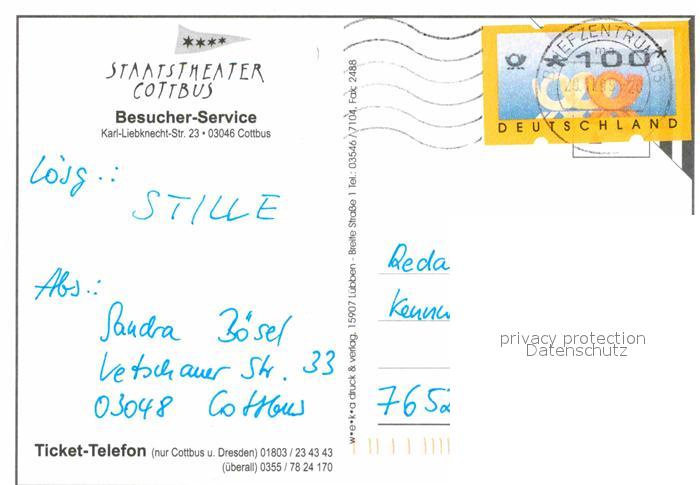 STAATSTHEATER
COTTBUS
Besucher-Service
Karl-Liebknecht-Str. 23 • 03046 Cottbus
Lösg.:
STILLE
Abs.:
Sandra Bösel
Vetschauer Str. 33
03048 Cottbus
Ticket-Telefon (nur Cottbus u. Dresden) 01803 / 23 43 43
(überall) 0355 / 78 24 170
w•e•k•a druck & verlag, 15907 Lübben - Breite Straße 1 Tel.: 03546 / 7104, Fax: 2488
BRIEFZENTRUM 03
ma
*100*
DEUTSCHLAND
Reda
Kennw
7652
privacy protection
Datenschutz